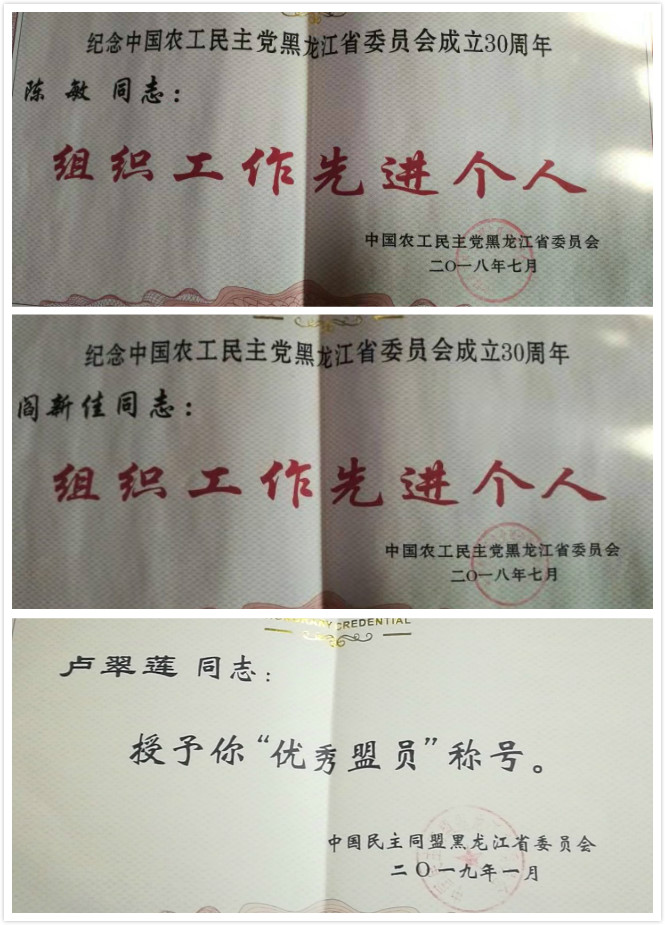 纪念中国农工民主党黑龙江省委员会成立30周年
陈 敏 同志：
组织工作先进个人
中国农工民主党黑龙江省委员会
二〇一八年七月
纪念中国农工民主党黑龙江省委员会成立30周年
阎新佳同志：
组织工作先进个人
中国农工民主党黑龙江省委员会
二〇一八年七月
CREDENTIAL
卢翠莲 同志：
授予你“优秀盟员”称号。
中国民主同盟黑龙江省委员会
二〇一九年一月